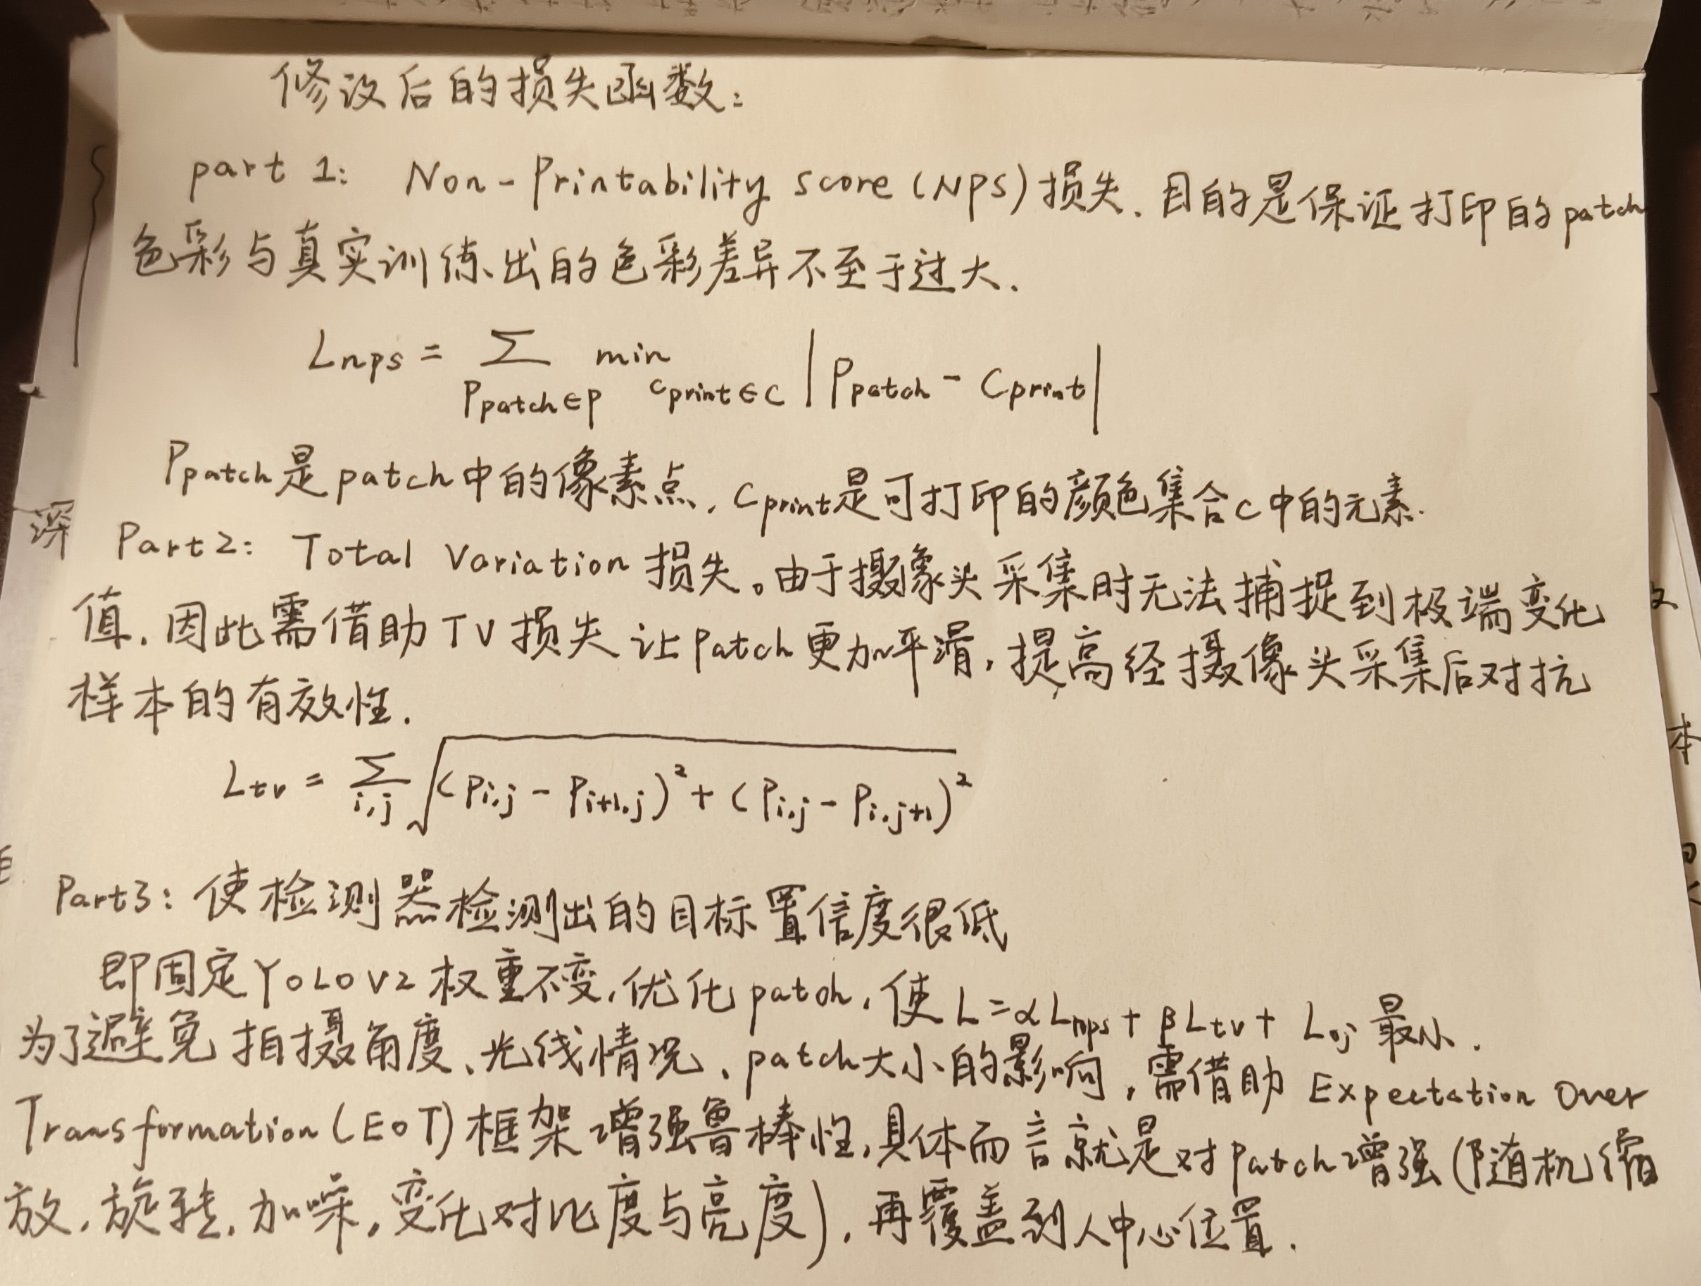 修改后的损失函数:
part 1: Non-Printability score (NPS)损失.目的是保证打印的patch
色彩与真实训练出的色彩差异不至于过大.
Lnps = ∑ Ppatch∈p min cprint∈C |Ppatch - Cprint|
Ppatch是patch中的像素点, Cprint是可打印的颜色集合C中的元素.
深
Part2: Total Variation 损失。由于摄像头采集时无法捕捉到极端变化
值,因此需借助TV损失让patch更加平滑,提高经摄像头采集后对抗
样本的有效性.
本
Ltv = ∑ i,j √(Pi,j - Pi+1,j)² + (Pi,j - Pi,j+1)²
Part3: 使检测器检测出的目标置信度很低
即固定YOLOV2权重不变,优化patch,使L=αLnps+βLtv+Loj最小.
为了避免拍摄角度、光线情况、patch大小的影响,需借助Expectation Over
Transformation(EOT)框架增强鲁棒性,具体而言就是对patch增强(随机缩
放,旋转,加噪,变化对比度与亮度),再覆盖到人中心位置.